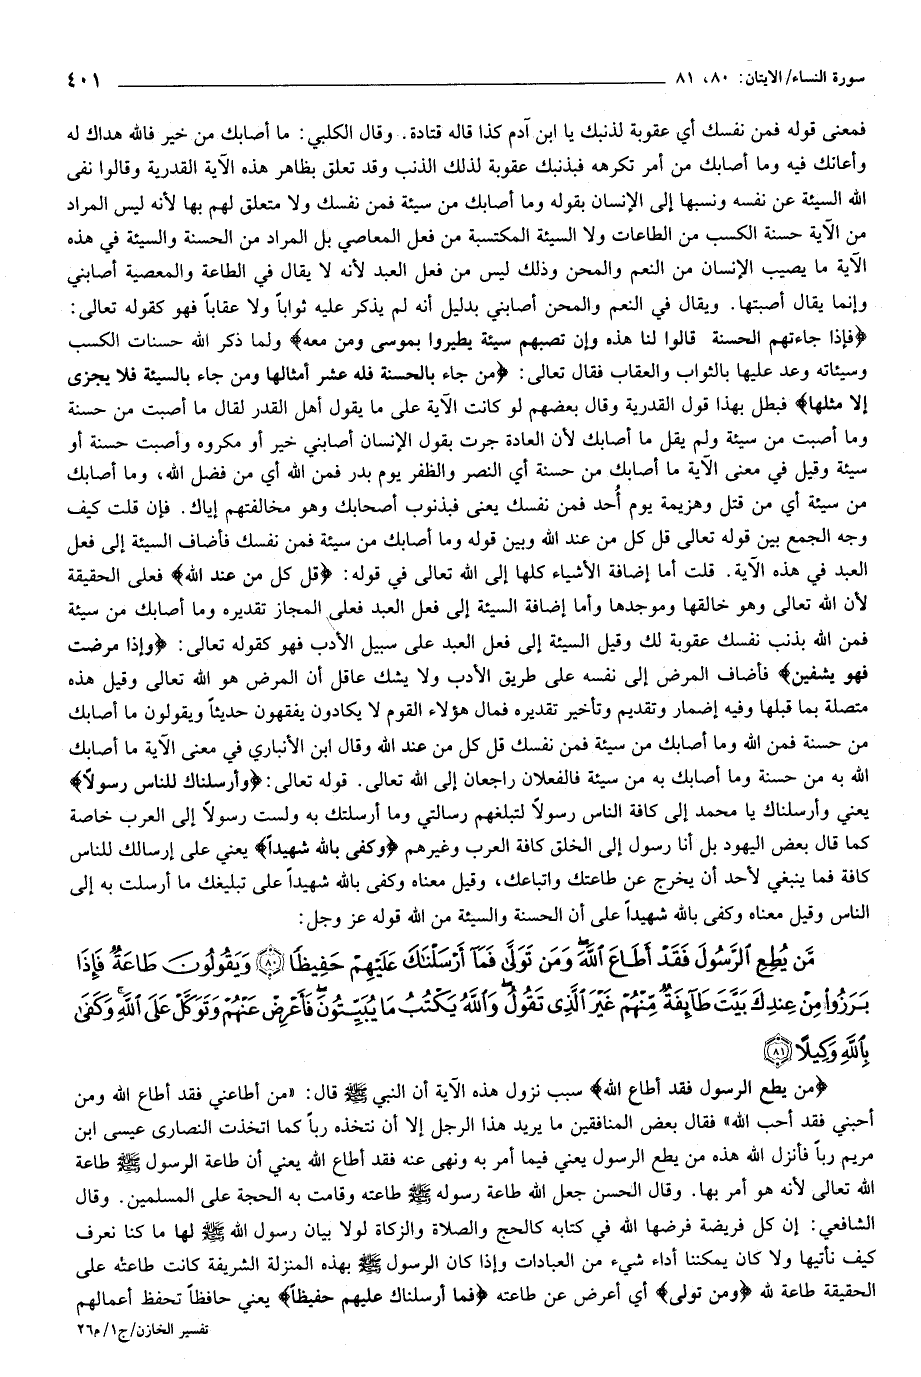 سورة النساء/ الايتان: ٨٠، ٨١ ٤٠١
فمعنى قوله فمن نفسك أي عقوبة لذنبك يا ابن آدم كذا قاله قتادة. وقال الكلبي: ما أصابك من خير فالله هداك له
وأعانك فيه وما أصابك من أمر تكرهه فبذنبك عقوبة لذلك الذنب وقد تعلق بظاهر هذه الآية القدرية وقالوا نفى
الله السيئة عن نفسه ونسبها إلى الإنسان بقوله وما أصابك من سيئة فمن نفسك ولا متعلق لهم بها لأنه ليس المراد
من الآية حسنة الكسب من الطاعات ولا السيئة المكتسبة من فعل المعاصي بل المراد من الحسنة والسيئة في هذه
الآية ما يصيب الإنسان من النعم والمحن وذلك ليس من فعل العبد لأنه لا يقال في الطاعة والمعصية أصابني
وإنما يقال أصبتها. ويقال في النعم والمحن أصابني بدليل أنه لم يذكر عليه ثواباً ولا عقاباً فهو كقوله تعالى:
﴿فإذا جاءتهم الحسنة قالوا لنا هذه وإن تصبهم سيئة يطيروا بموسى ومن معه﴾ ولما ذكر الله حسنات الكسب
وسيئاته وعد عليها بالثواب والعقاب فقال تعالى: ﴿من جاء بالحسنة فله عشر أمثالها ومن جاء بالسيئة فلا يجزى
إلا مثلها﴾ فبطل بهذا قول القدرية وقال بعضهم لو كانت الآية على ما يقول أهل القدر لقال ما أصبت من حسنة
وما أصبت من سيئة ولم يقل ما أصابك لأن العادة جرت بقول الإنسان أصابني خير أو مكروه وأصبت حسنة أو
سيئة وقيل في معنى الآية ما أصابك من حسنة أي النصر والظفر يوم بدر فمن الله أي من فضل الله، وما أصابك
من سيئة أي من قتل وهزيمة يوم أُحد فمن نفسك يعنى فبذنوب أصحابك وهو مخالفتهم إياك. فإن قلت كيف
وجه الجمع بين قوله تعالى قل كل من عند الله وبين قوله وما أصابك من سيئة فمن نفسك فأضاف السيئة إلى فعل
العبد في هذه الآية. قلت أما إضافة الأشياء كلها إلى الله تعالى في قوله: ﴿قل كل من عند الله﴾ فعلى الحقيقة
لأن الله تعالى وهو خالقها وموجدها وأما إضافة السيئة إلى فعل العبد فعلى المجاز تقديره وما أصابك من سيئة
فمن الله بذنب نفسك عقوبة لك وقيل السيئة إلى فعل العبد على سبيل الأدب فهو كقوله تعالى: ﴿وإذا مرضت
فهو يشفين﴾ فأضاف المرض إلى نفسه على طريق الأدب ولا يشك عاقل أن المرض هو الله تعالى وقيل هذه
متصلة بما قبلها وفيه إضمار وتقديم وتأخير تقديره فمال هؤلاء القوم لا يكادون يفقهون حديثاً ويقولون ما أصابك
من حسنة فمن الله وما أصابك من سيئة فمن نفسك قل كل من عند الله وقال ابن الأنباري في معنى الآية ما أصابك
الله به من حسنة وما أصابك به من سيئة فالفعلان راجعان إلى الله تعالى. قوله تعالى: ﴿وأرسلناك للناس رسولاً﴾
يعني وأرسلناك يا محمد إلى كافة الناس رسولاً لتبلغهم رسالتي وما أرسلتك به ولست رسولاً إلى العرب خاصة
كما قال بعض اليهود بل أنا رسول إلى الخلق كافة العرب وغيرهم ﴿وكفى بالله شهيداً﴾ يعني على إرسالك للناس
كافة فما ينبغي لأحد أن يخرج عن طاعتك واتباعك، وقيل معناه وكفى بالله شهيداً على تبليغك ما أرسلت به إلى
الناس وقيل معناه وكفى بالله شهيداً على أن الحسنة والسيئة من الله قوله عز وجل:
مَّن يُطِعِ ٱلرَّسُولَ فَقَدْ أَطَاعَ ٱللَّهَ ۖ وَمَن تَوَلَّىٰ فَمَآ أَرْسَلْنَٰكَ عَلَيْهِمْ حَفِيظًا ﴿٨٠﴾ وَيَقُولُونَ طَاعَةٌ فَإِذَا
بَرَزُوا۟ مِنْ عِندِكَ بَيَّتَ طَآئِفَةٌ مِّنْهُمْ غَيْرَ ٱلَّذِى تَقُولُ ۖ وَٱللَّهُ يَكْتُبُ مَا يُبَيِّتُونَ ۖ فَأَعْرِضْ عَنْهُمْ وَتَوَكَّلْ عَلَى ٱللَّهِ ۚ وَكَفَىٰ
بِٱللَّهِ وَكِيلًا ﴿٨١﴾
﴿من يطع الرسول فقد أطاع الله﴾ سبب نزول هذه الآية أن النبي ﷺ قال: «من أطاعني فقد أطاع الله ومن
أحبني فقد أحب الله» فقال بعض المنافقين ما يريد هذا الرجل إلا أن نتخذه رباً كما اتخذت النصارى عيسى ابن
مريم رباً فأنزل الله هذه من يطع الرسول يعني فيما أمر به ونهى عنه فقد أطاع الله يعني أن طاعة الرسول ﷺ طاعة
الله تعالى لأنه هو أمر بها. وقال الحسن جعل الله طاعة رسوله ﷺ طاعته وقامت به الحجة على المسلمين. وقال
الشافعي: إن كل فريضة فرضها الله في كتابه كالحج والصلاة والزكاة لولا بيان رسول الله ﷺ لها ما كنا نعرف
كيف نأتيها ولا كان يمكننا أداء شيء من العبادات وإذا كان الرسول ﷺ بهذه المنزلة الشريفة كانت طاعته على
الحقيقة طاعة لله ﴿ومن تولى﴾ أي أعرض عن طاعته ﴿فما أرسلناك عليهم حفيظاً﴾ يعني حافظاً تحفظ أعمالهم
تفسير الخازن/ج١/م٢٦